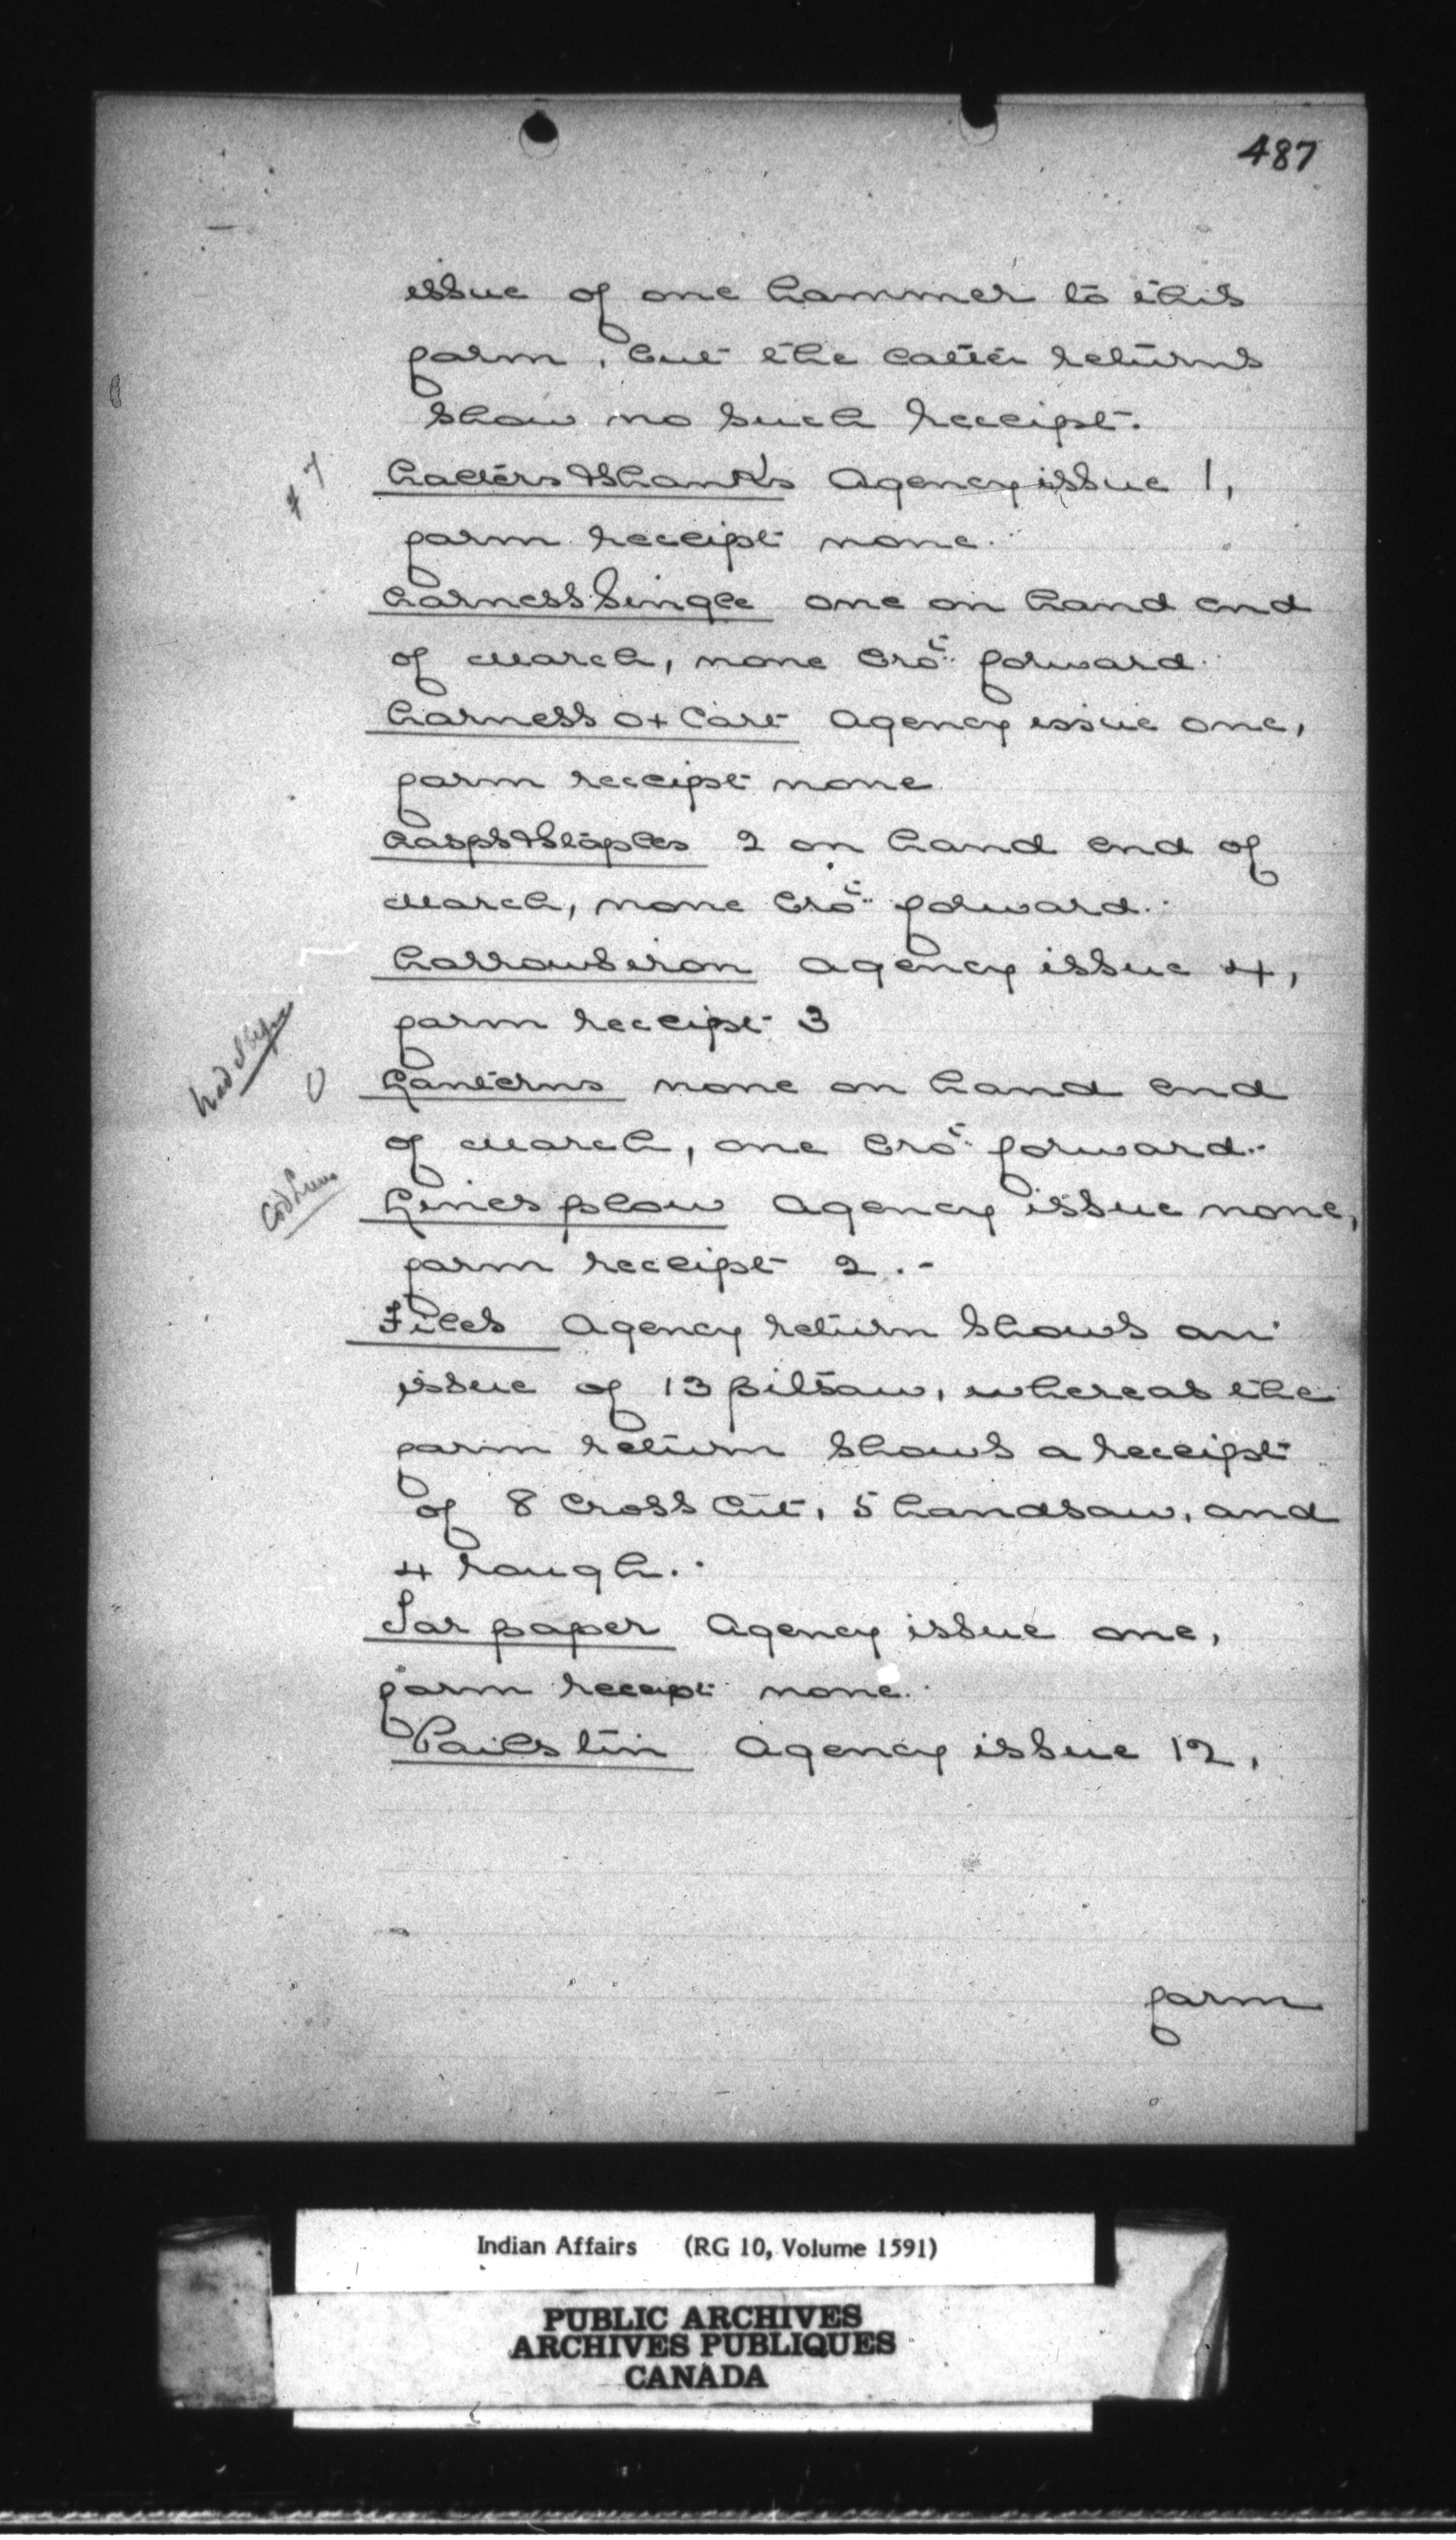 487
issue of one hammer to this
farm, but the latter returns
show no such receipt.
Halters & Shanks Agency issue 1,
farm receipt none.
Harness Single one on hand end
of March, none bro't forward.
Harness Ox Cart Agency issue one,
farm receipt none
Hasps & Staples 2 on hand end of
March, none bro't forward.
Harrows iron agency issue 4,
farm receipt 3
Lanterns none on hand end
of March, one bro't forward.
Lines plow Agency issue none,
farm receipt 2.-
Files Agency return shows an
issue of 13 pitsaw, whereas the
farm return shows a receipt
of 8 Cross Cut, 5 handsaw, and
4 rough.
Tar paper Agency issue one,
farm receipt none.
Pails tin Agency issue 12,
farm
Indian Affairs (RG 10, Volume 1591)
PUBLIC ARCHIVES
ARCHIVES PUBLIQUES
CANADA